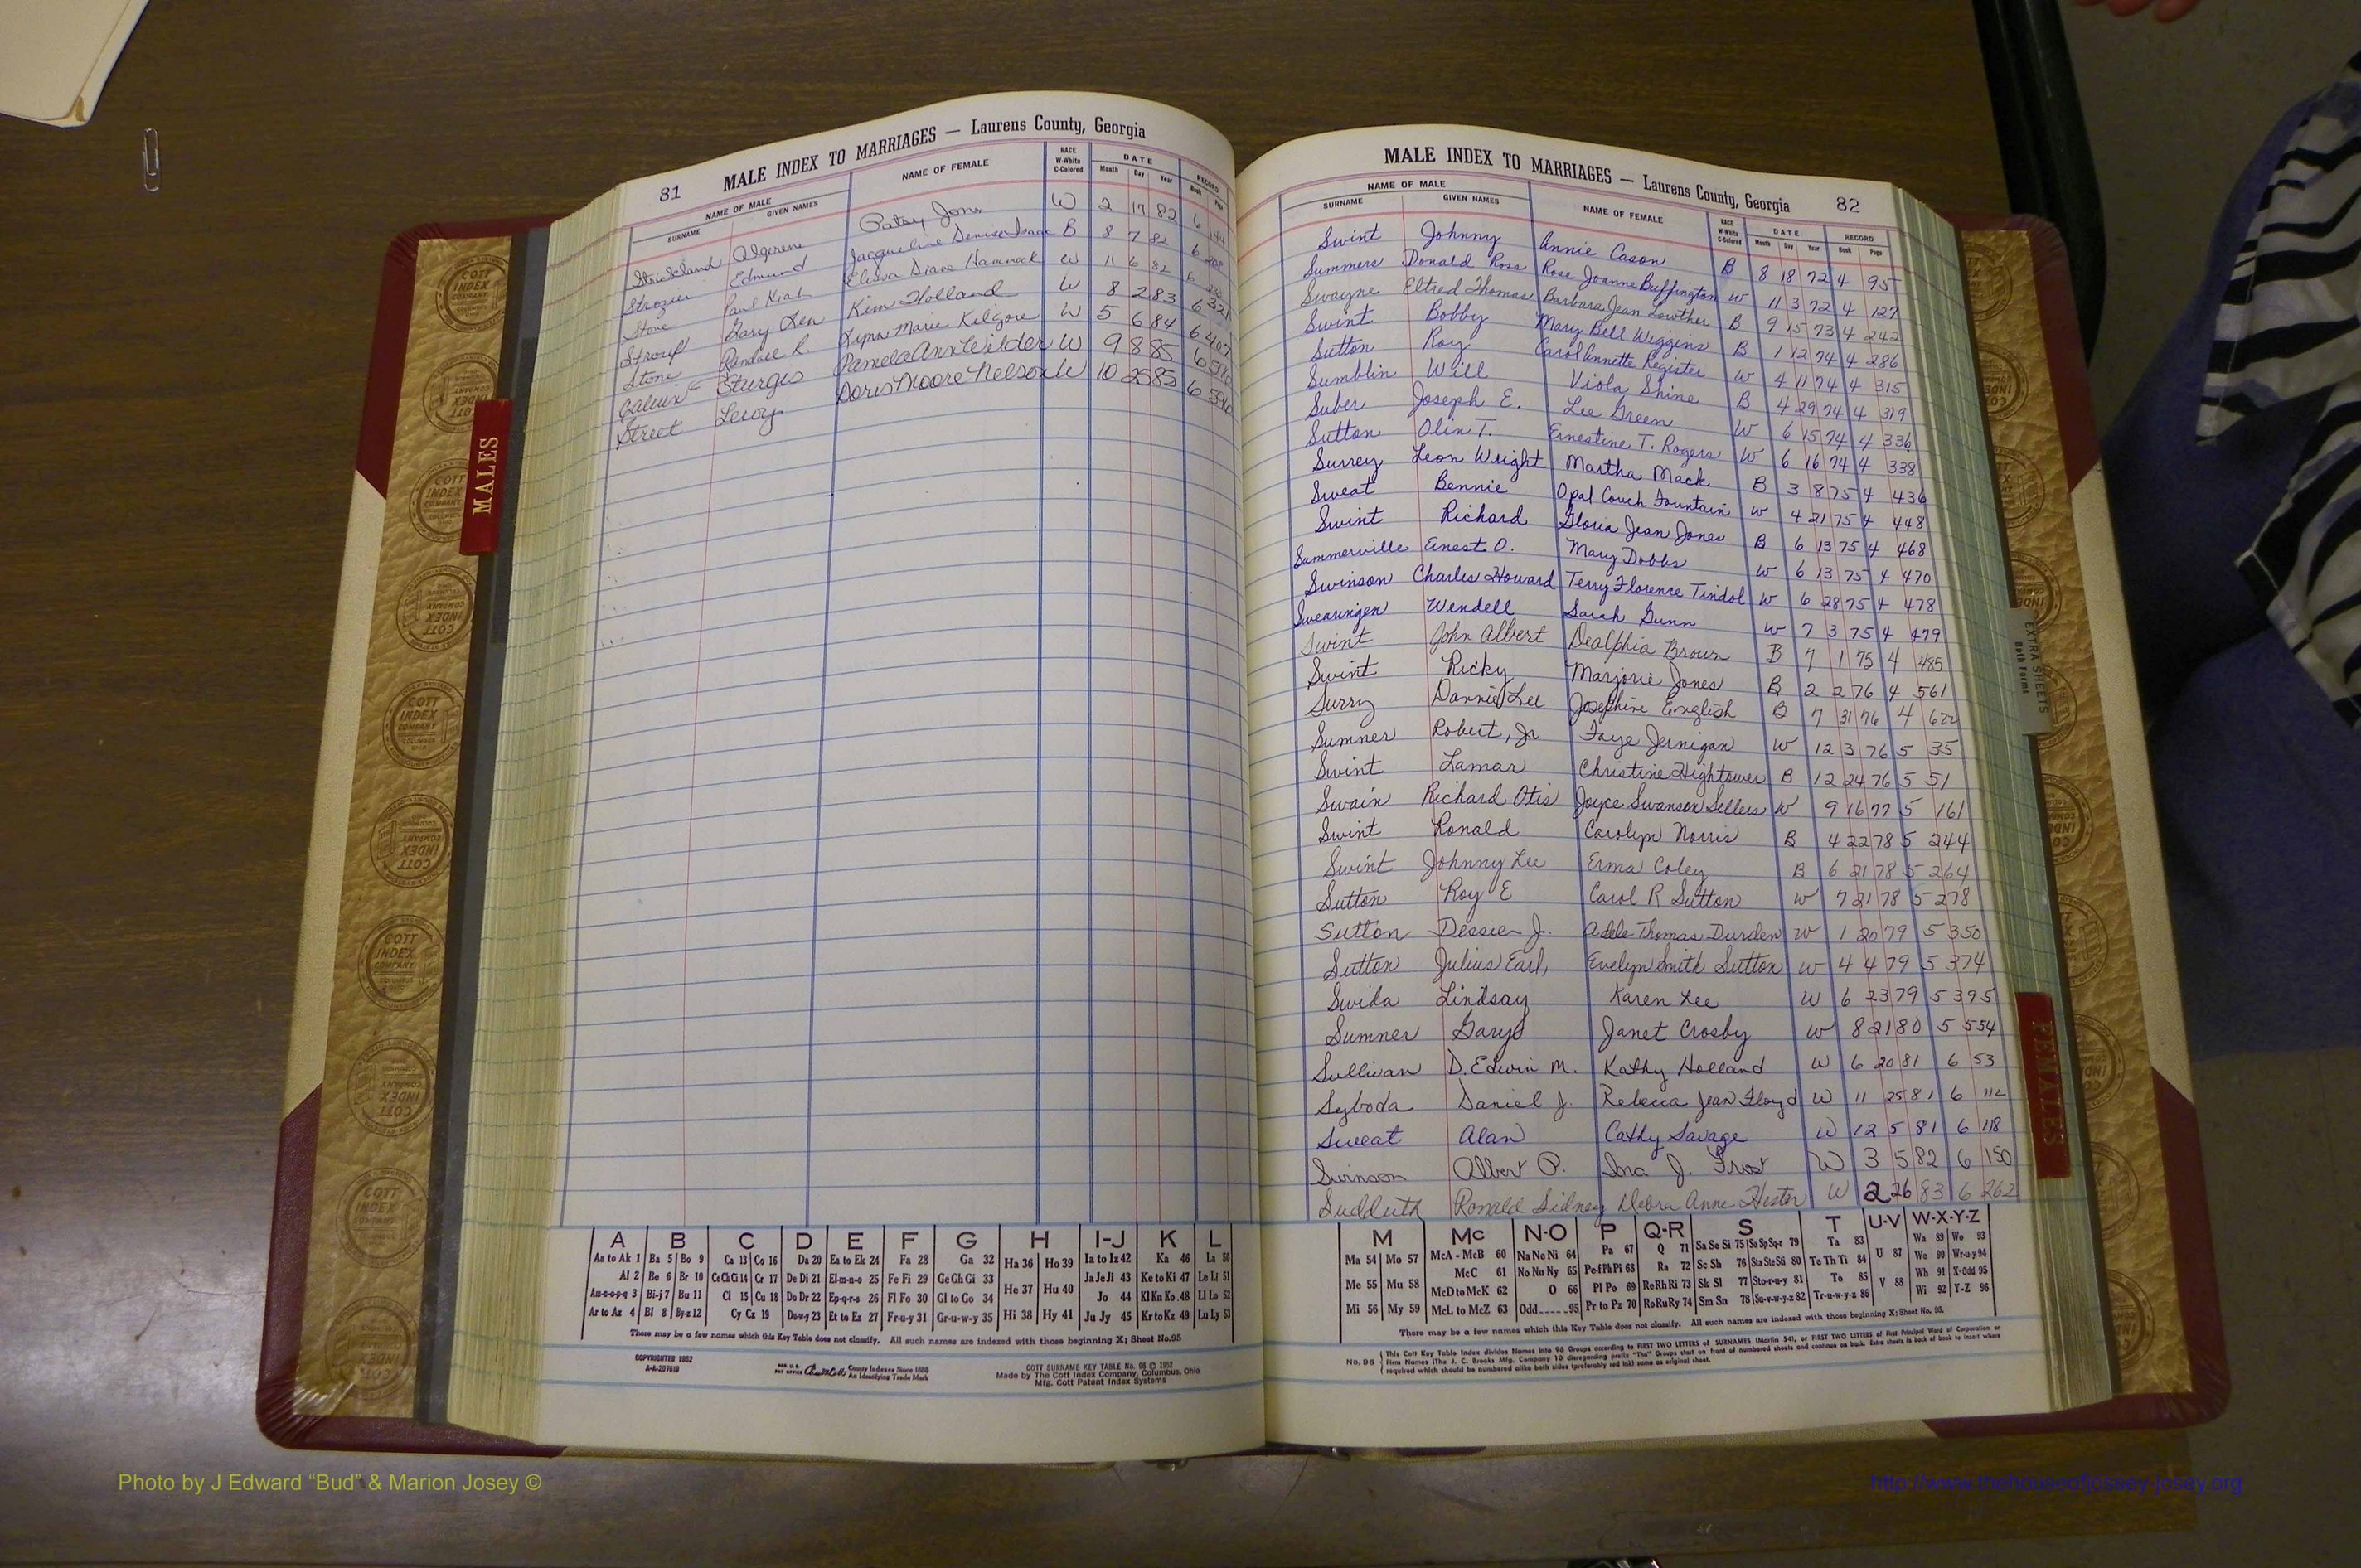 81 MALE INDEX TO MARRIAGES — Laurens County, Georgia
NAME OF MALE NAME OF FEMALE RACE DATE RECORD
SURNAME GIVEN NAMES W-White C-Colored Month Day Year Book Page
Strickland Algerene Patsy Jones W 2 17 82 6
Strozier Edmund Jacqueline Denise B 8 7 82 6
Stone Paul Elissa Diane Hammock W 11 6 82 6
Stroup Gary Len Kim Holland W 8 2 83 6 321
Stone Randall R. Lynn Marie Kilgore W 5 6 84 6 407
Calvin Sturgis Pamela Ann Wilder W 9 8 85 6
Street Leroy Doris Moore Nelson W 10 25 85 6
MALES
A B C D E F G H I-J K L
Aa to Ak 1 Ba 5 Bo 9 Ca 13 Co 16 Da 20 Ea to Ek 24 Fa 28 Ga 32 Ha 36 Ho 39 Ia to Iz 42 Ka 46 La 50
Al 2 Be 6 Br 10 Ce Ch Ci 14 Cr 17 De Di 21 El-m-n-o 25 Fe Fi 29 Ge Gh Gi 33 He 37 Hu 40 Ja Je Ji 43 Ke to Ki 47 Le Li 51
Am-n-o-p-q 3 Bi-j 7 Bu 11 Cl 15 Cu 18 Do Dr 22 Ep-q-r-s 26 Fl Fo 30 Gl to Go 34 Jo 44 Kl Kn Ko 48 Ll Lo 52
Ar to Az 4 Bl 8 By-z 12 Cy Cz 19 Du-w-y 23 Et to Ez 27 Fr-u-y 31 Gr-u-w-y 35 Hi 38 Hy 41 Ju Jy 45 Kr to Kz 49 Lu Ly 53
There may be a few names which this Key Table does not classify. All such names are indexed with those beginning X; Sheet No.95
COPYRIGHTED 1952
A-A-207619
County Indexes Since 1888
An Identifying Trade Mark
COTT SURNAME KEY TABLE No. 96 © 1952
Made by The Cott Index Company, Columbus, Ohio
Mfg. Cott Patent Index Systems
MALE INDEX TO MARRIAGES — Laurens County, Georgia 82
NAME OF MALE NAME OF FEMALE RACE DATE RECORD
SURNAME GIVEN NAMES W-White C-Colored Month Day Year Book Page
Swint Johnny Annie Cason B 8 18 72 4 95
Summers Donald Ross Rose Joanne Buffington W 11 3 72 4 127
Swayne Eltred Thomas Barbara Jean Lowther B 9 15 73 4 242
Swint Bobby Mary Bell Wiggins B 1 12 74 4 286
Sutton Roy Carol Annette Register W 4 11 74 4 315
Sumblin Will Viola Shine B 4 29 74 4 319
Suber Joseph E. Lee Green W 6 15 74 4 336
Sutton Olin T. Ernestine T. Rogers W 6 16 74 4 338
Surrey Leon Wright Martha Mack B 3 8 75 4 436
Sweat Bennie Opal Couch Fountain W 4 21 75 4 448
Swint Richard Gloria Jean Jones B 6 13 75 4 468
Summerville Ernest O. Mary Dobbs W 6 13 75 4 470
Swinson Charles Howard Terry Florence Tindol W 6 28 75 4 478
Swearingen Wendell Sarah Gunn W 7 3 75 4 479
Swint John Albert Dealphia Brown B 7 1 75 4 485
Swint Ricky Marjorie Jones B 2 2 76 4 561
Surry Dannie Lee Josephine English B 7 31 76 4 622
Sumner Robert, Jr Faye Jernigan W 12 3 76 5 35
Swint Lamar Christine Hightower B 12 24 76 5 51
Swain Richard Otis Joyce Swanson Sellers W 9 16 77 5 161
Swint Ronald Carolyn Norris B 4 22 78 5 244
Swint Johnny Lee Erma Coley B 6 21 78 5 264
Sutton Roy E Carol R Sutton W 7 21 78 5 278
Sutton Dessie J. Adele Thomas Durden W 1 20 79 5 350
Sutton Julius Earl, Evelyn Smith Sutton W 4 4 79 5 374
Swida Lindsay Karen Lee W 6 23 79 5 395
Sumner Gary Janet Crosby W 8 21 80 5 554
Sullivan D. Edwin M. Kathy Holland W 6 20 81 6 53
Syboda Daniel J. Rebecca Jean Floyd W 11 25 81 6 112
Sweat Alan Cathy Savage W 12 5 81 6 118
Swinson Albert P. Ina J. Frost W 3 5 82 6 150
Sudduth Ronald Sidney Debra Anne Hester W 2 26 83 6 262
EXTRA SHEETS
Both Forms
FEMALES
M Mc N-O P Q-R S T U-V W-X-Y-Z
Ma 54 Mo 57 McA - McB 60 Na Ne Ni 64 Pa 67 Q 71 Sa Se Si 75 So Sp Sq-r 79 Ta 83 Wa 89 Wo 93
Me 55 Mu 58 McC 61 No Nu Ny 65 Pe-f Ph Pi 68 Ra 72 Sc Sh 76 Sta Ste Sti 80 Te Th Ti 84 U 87 We 90 Wr-u-y 94
McD to McK 62 O 66 Pl Po 69 Re Rh Ri 73 Sk Sl 77 Sto-r-u-y 81 To 85 V 88 Wh 91 X-Odd 95
Mi 56 My 59 McL to McZ 63 Odd.....95 Pr to Pz 70 Ro Ru Ry 74 Sm Sn 78 Su-v-w-y-z 82 Tr-u-w-y-z 86 Wi 92 Y-Z 96
There may be a few names which this Key Table does not classify. All such names are indexed with those beginning X; Sheet No. 95.
No. 96 This Cott Key Table Index divides Names into 96 Groups according to FIRST TWO LETTERS of SURNAMES (Martin 54), or FIRST TWO LETTERS of First Principal Word of Corporation or
Firm Names (The J. C. Brooks Mfg. Company 10 disregarding prefix "The" Groups start on front of numbered sheets and continue on back. Extra sheets in back of book to insert where
required which should be numbered alike both sides (preferably red ink) same as original sheet.
Photo by J Edward “Bud” & Marion Josey ©
http://www.thehouseofjossey-josey.org